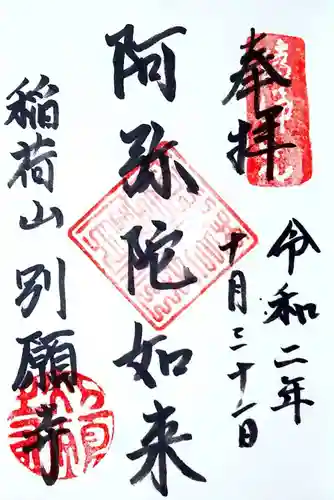 奉拝
令和二年
十月三十一日
阿弥陀如来
稲荷山 別願寺